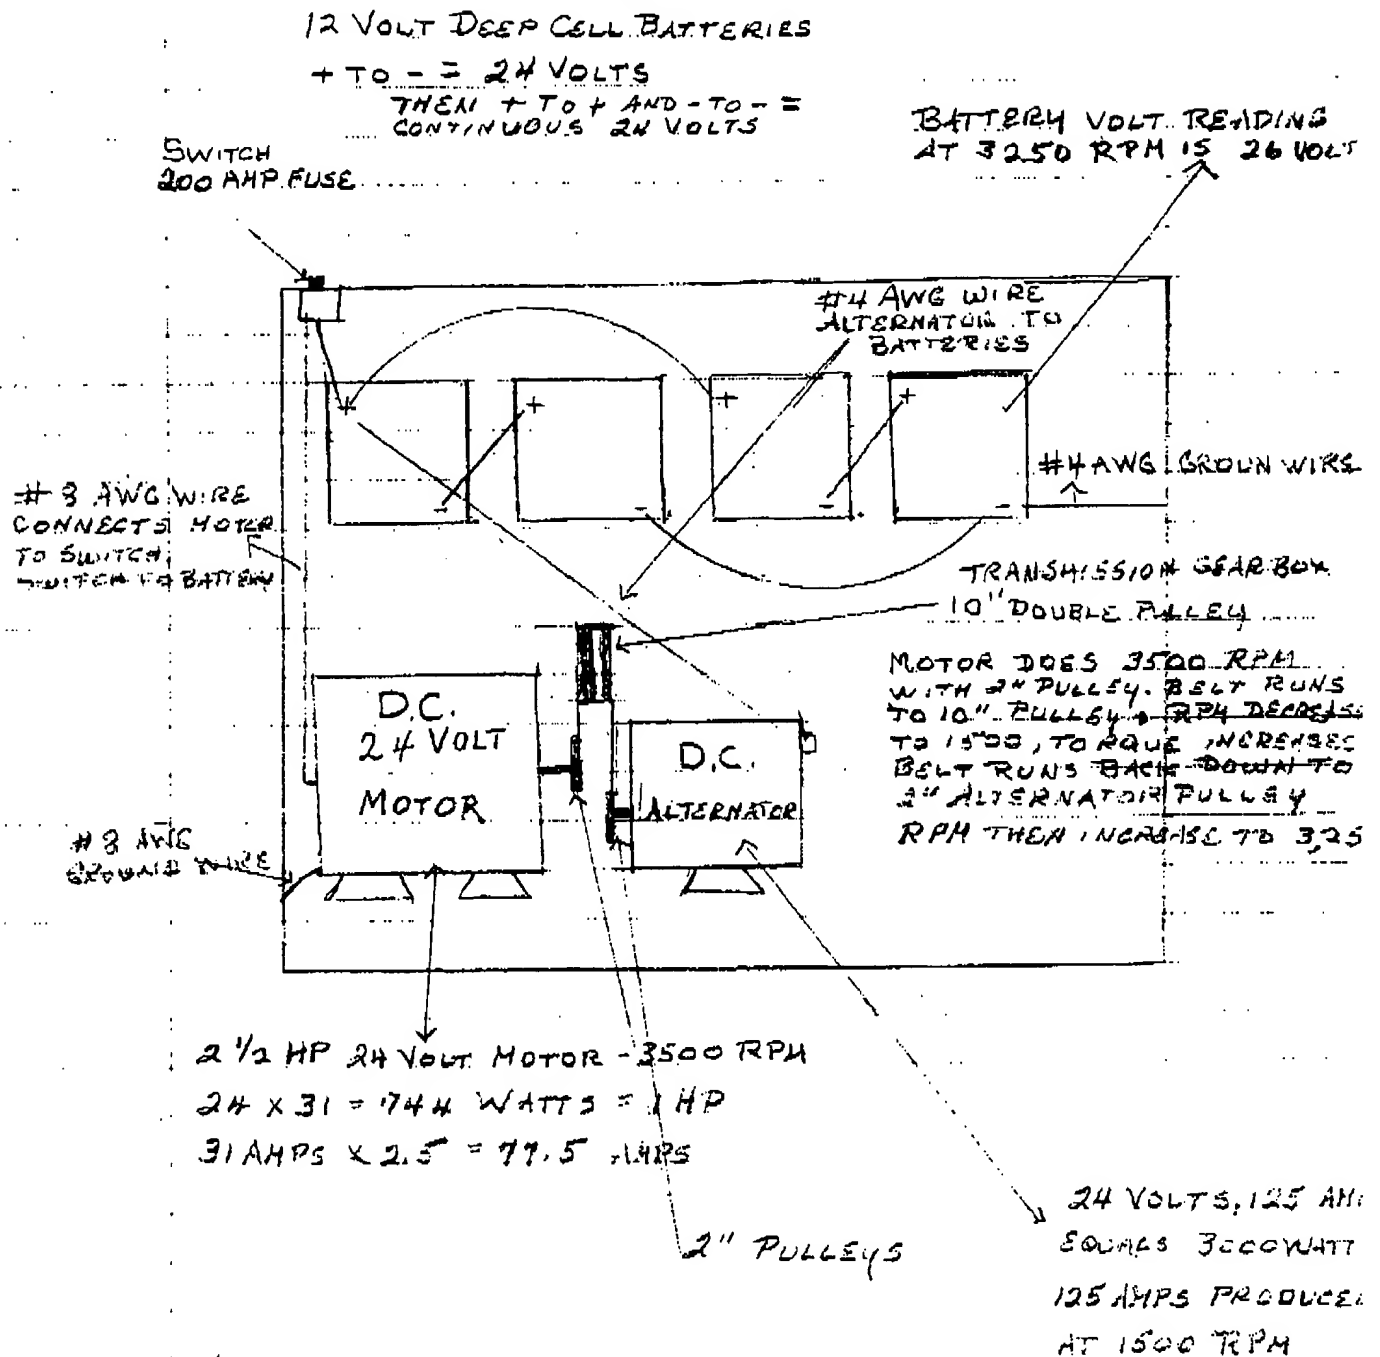 12 VOLT DEEP CELL BATTERIES
+ TO - = 24 VOLTS
THEN + TO + AND - TO - =
CONTINUOUS 24 VOLTS
SWITCH
200 AMP FUSE
BATTERY VOLT READING
AT 3250 RPM IS 26 VOLT
#4 AWG WIRE
ALTERNATOR TO
BATTERIES
+
+
+
+
-
-
-
-
#4 AWG GROUN WIRE
#8 AWG WIRE
CONNECTS MOTER
TO SWITCH,
SWITCH TO BATTERY
TRANSMISSION GEAR BOX
10" DOUBLE PULLEY
MOTOR DOES 3500 RPM
WITH 2" PULLEY. BELT RUNS
TO 10" PULLEY RPM DECREAS
TO 1500, TORQUE INCREASES
BELT RUNS BACK DOWN TO
2" ALTERNATOR PULLEY
RPM THEN INCREASE TO 3,25
D.C.
24 VOLT
MOTOR
D.C.
ALTERNATOR
#8 AWG
GROUND WIRE
2 1/2 HP 24 VOLT MOTOR - 3500 RPM
24 X 31 = 744 WATTS = 1 HP
31 AMPS X 2.5 = 77.5 AMPS
2" PULLEYS
24 VOLTS, 125 AM
EQUALS 3000 WATT
125 AMPS PRODUCE
AT 1500 RPM